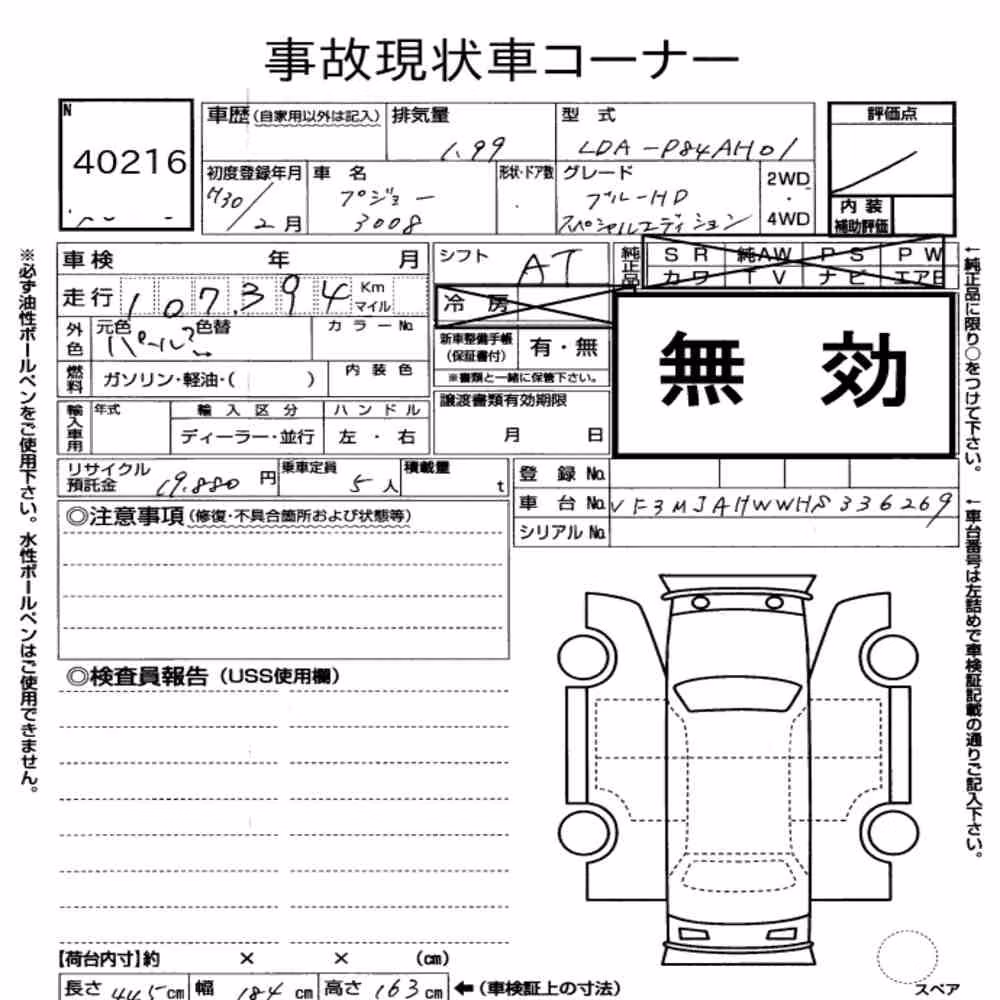 事故現状車コーナー
N
40216
車歴(自家用以外は記入)
排気量
1.99
型 式
LDA-P84AH01
評価点
初度登録年月
H30/2月
車 名
プジョー
3008
形状・ドア数
グレード
ブルーHD
スペシャルエディション
2WD
・
4WD
内 装
補助評価
車検 年 月
走行 107.394 Km
マイル
シフト
AT
純正品
SR 純AW PS PW
カワ TV ナビ エアB
冷 房
無 効
外色
元色 色替
パール
カラーNo.
新車整備手帳
(保証書付)
有・無
※書類と一緒に保管下さい。
燃料
ガソリン・軽油・( )
内装色
輸入車用
年式
輸入区分
ディーラー・並行
ハンドル
左 ・ 右
譲渡書類有効期限
月 日
リサイクル
預託金
19.880 円
乗車定員
5 人
積載量
t
登 録 No.
車 台 No. VF3MJAHWWHS336269
シリアル No.
◎注意事項(修復・不具合箇所および状態等)
◎検査員報告(USS使用欄)
※必ず油性ボールペンをご使用下さい。水性ボールペンはご使用できません。
←純正品に限り○をつけて下さい。
←車台番号は左詰めで車検証記載の通りご記入下さい。
【荷台内寸】約 × × (cm)
長さ 445 cm 幅 184 cm 高さ 163 cm ←(車検証上の寸法)
スペア